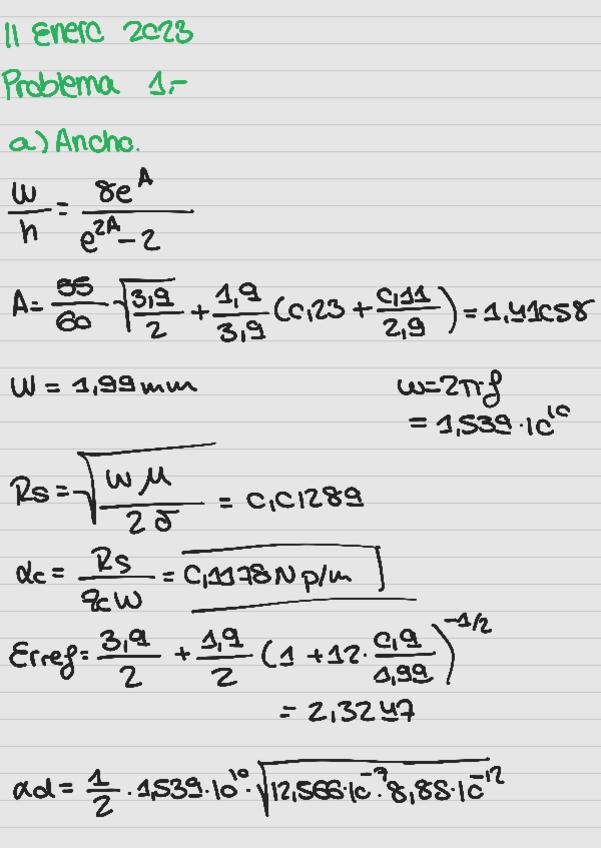 11 Enero 2023
Problema 1.-
a) Ancho.
W/h = 8e^A / (e^2A - 2)
A = 55/60 √(3,9/2) + 1,9/3,9 (0,23 + 0,11/2,9) = 1,41058
W = 1,99 mm
w = 2πf
= 1,539·10^10
Rs = √(wμ / 2σ) = 0,01289
αc = Rs / ZcW = 0,1178 Np/m
Erref = 3,9/2 + 1,9/2 (1 + 12·0,9/1,99)^-1/2
= 2,3247
αd = 1/2 · 1,539·10^10 · √(12,566·10^-7·8,85·10^-12)